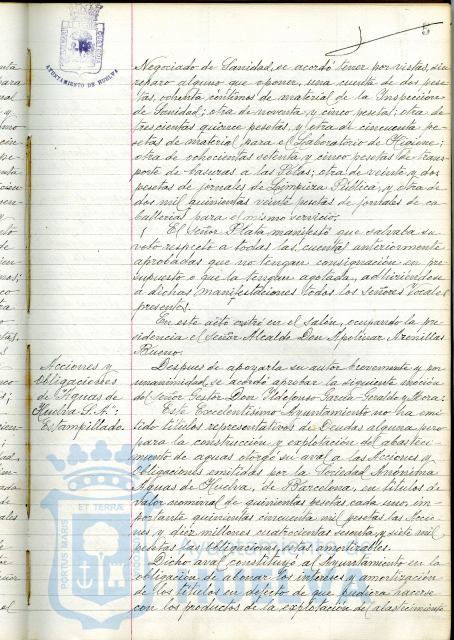 5
AYUNTAMIENTO DE HUELVA
Negociado de Sanidad, se acordó tener por vistas, sin
reparo alguno que oponer, una cuenta de dos pese-
tas, ochenta céntimos de material de la Inspección
de Sanidad; otra de noventa y cinco pesetas; otra de
trescientas quince pesetas, y otra de cincuenta pe-
setas de material para el Laboratorio de Higiene;
otra de ochocientas setenta y cinco pesetas de trans-
porte de basuras a las Islas; otra de veinte y dos
pesetas de jornales de Limpieza Pública, y otra de
dos mil quinientas veinte pesetas de jornales de ca-
ballerías para el mismo servicio.
El Señor Plata manifestó que salvaba su
voto respecto a todas las cuentas anteriormente
aprobadas que no tengan consignación en pre-
supuesto o que la tengan agotada, adhiriéndose
a dichas manifestaciones todos los señores Vocales
presentes.
En este acto entró en el salón, ocupando la pre-
sidencia el Señor Alcalde Don Apolinar Arenillas
Bueno.
Acciones y
obligaciones
de Aguas de
Huelva S.A.:
Estampillado.
Despues de apoyarla su autor brevemente y por
unanimidad, se acordó aprobar la siguiente moción
del señor Gestor Don Ildefonso García-Geraldo y Mora:
Este Excelentísimo Ayuntamiento no ha emi-
tido títulos representativos de Deudas alguna, pero
para la construcción y explotación del abasteci-
miento de aguas otorgó su aval a las Acciones y
obligaciones emitidas por la Sociedad Anónima
Aguas de Huelva, de Barcelona, en títulos de
valor nominal de quinientas pesetas cada uno, im-
portante quinientas cincuenta mil pesetas las Accio-
nes y diez millones cuatrocientas sesenta y siete mil
pesetas las obligaciones, éstas amortizables.
Dicho aval constituyó al Ayuntamiento en la
obligación de abonar los intereses y amortización
de los títulos en defecto de que pudiera hacerse
con los productos de la explotación del abastecimiento
PORTUS MARIS ET TERRÆ